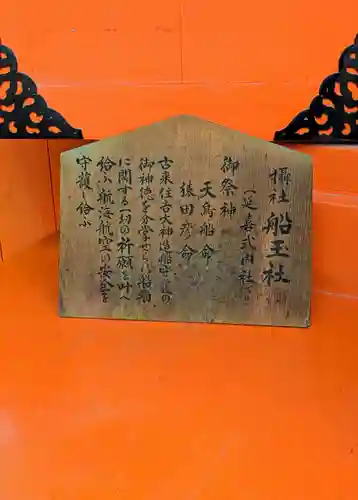 攝社 船玉社
(延喜式内社)
御祭神
天鳥船命
猿田彦命
古来住吉大神の
御神徳を
に関する一切の祈願を叶へ
給ふ航海航空の安全を
守護し給ふ